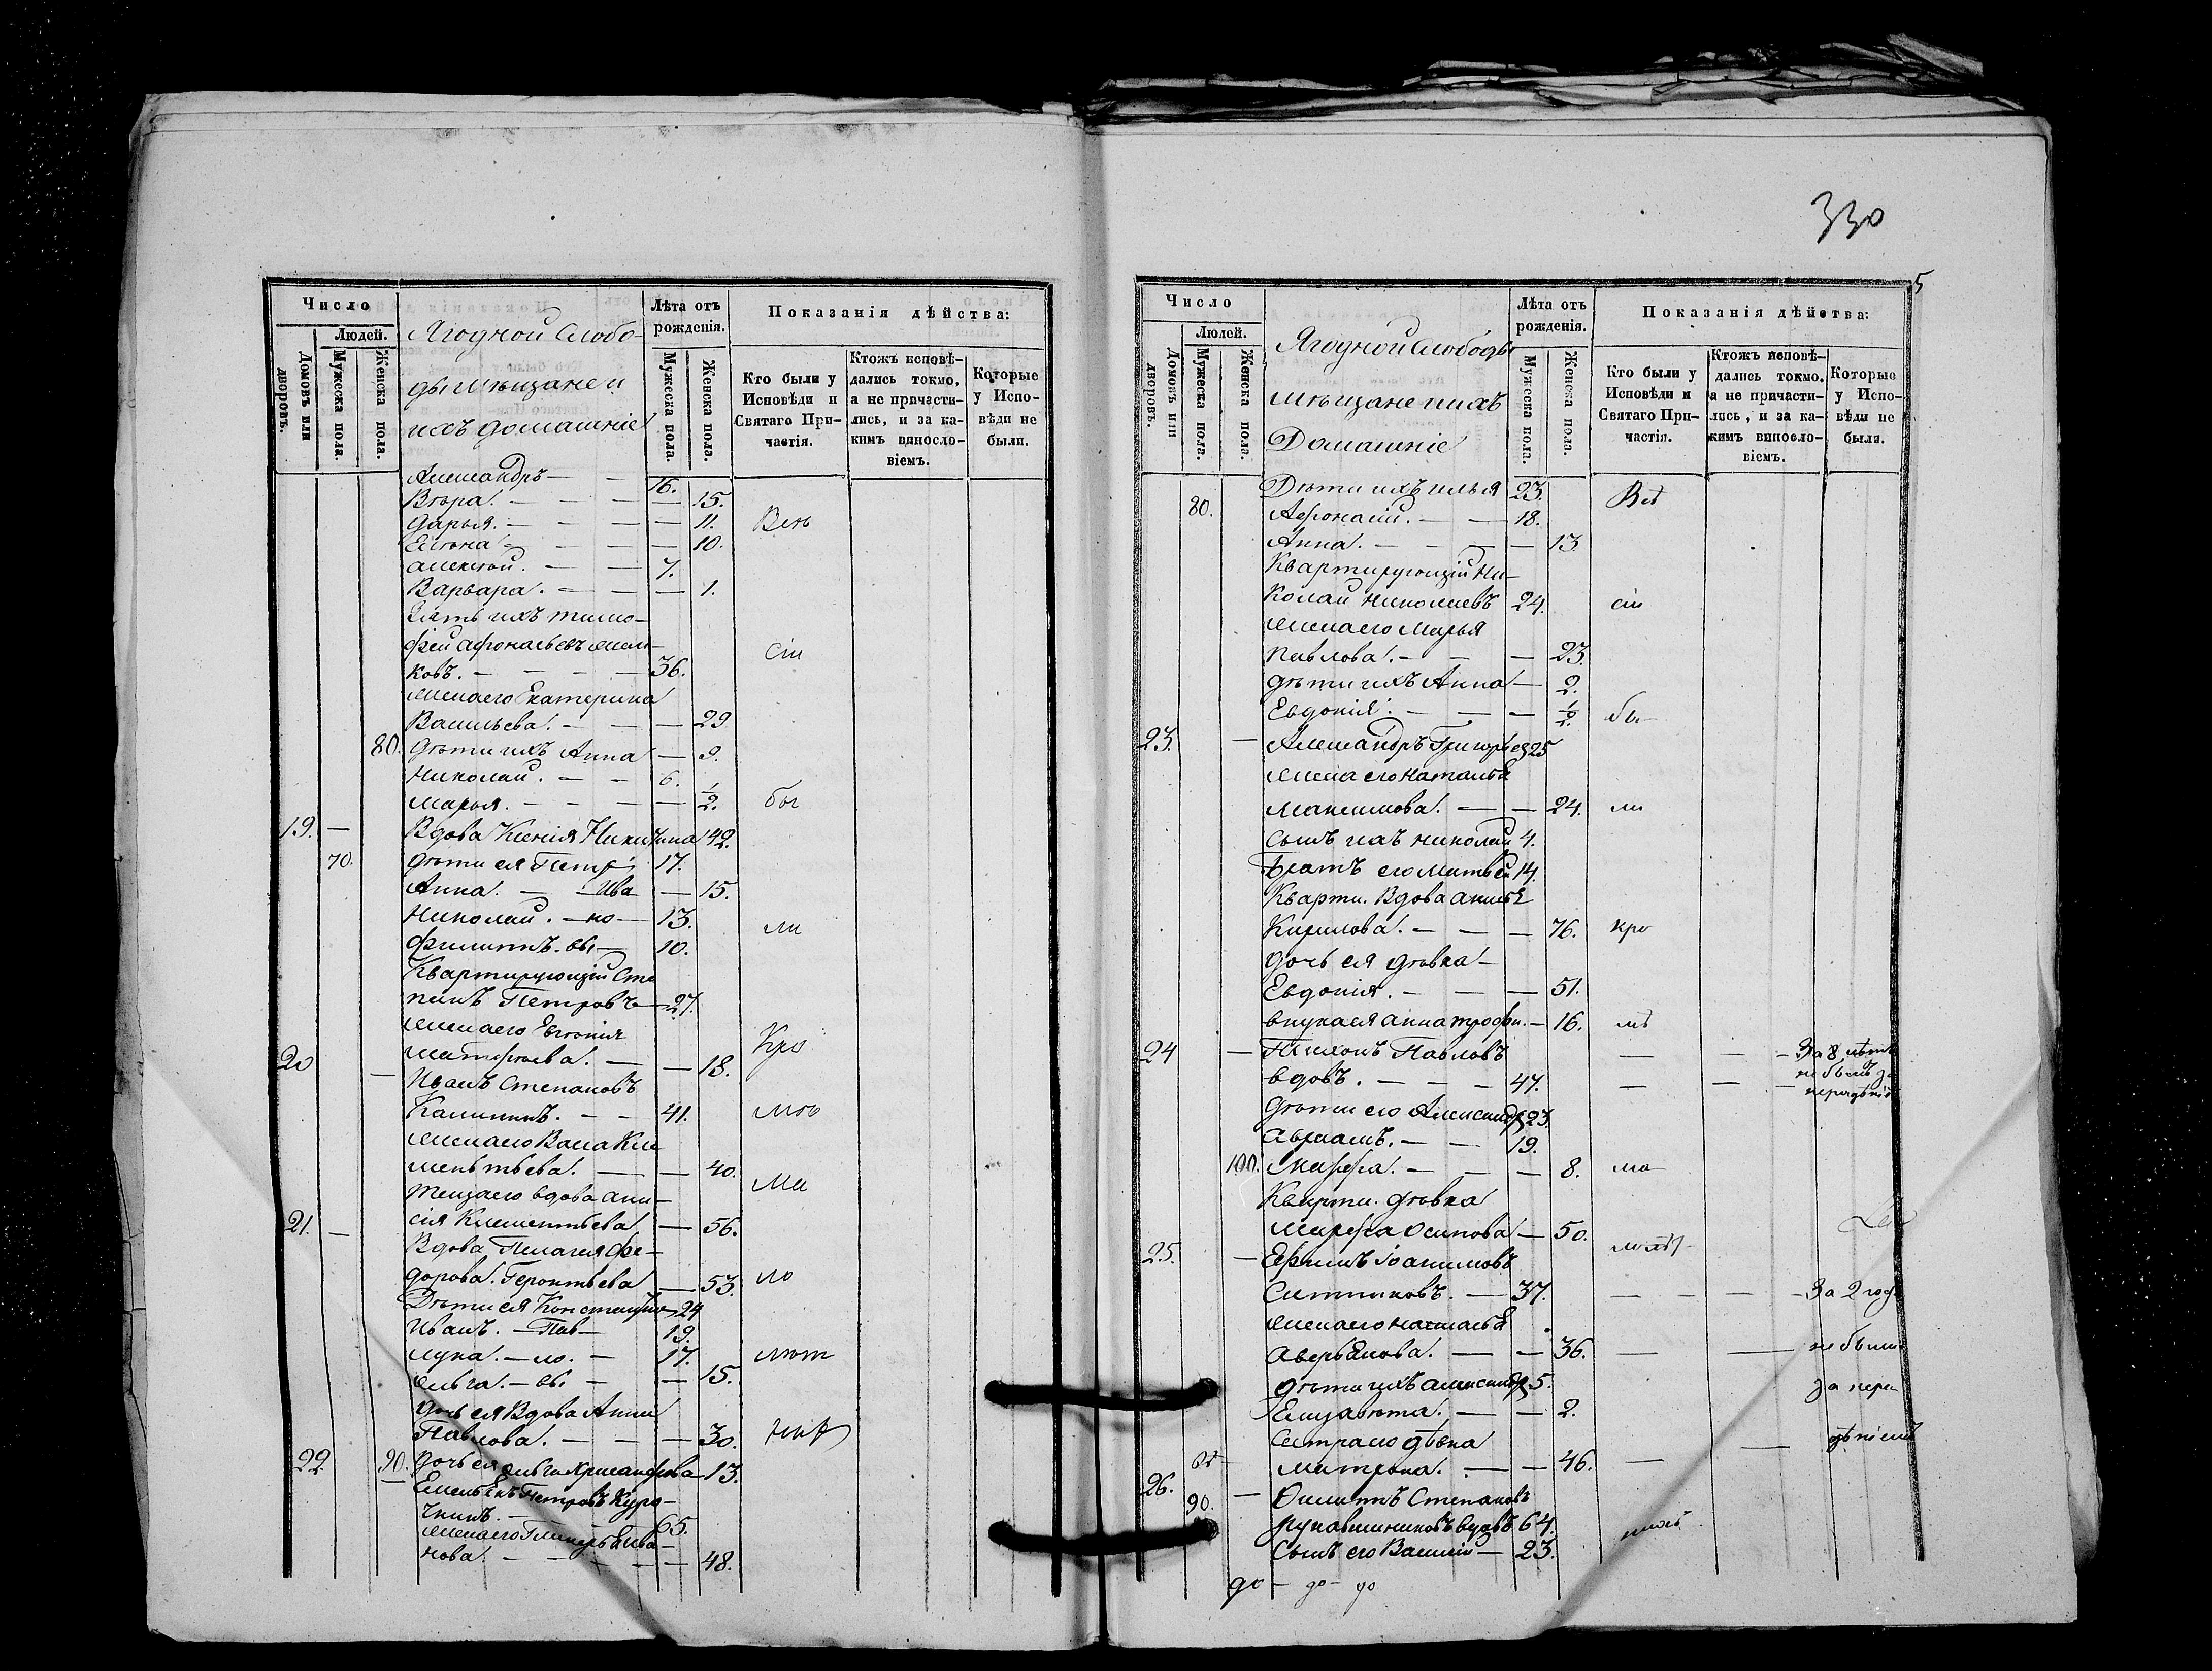 330
5
Число
Людей.
Домовъ или дворовъ.
Мужеска пола.
Женска пола.
Ягодной Слобо-
ды мѣщане и
ихъ домашніе
Лѣта отъ рожденія.
Мужеска пола.
Женска пола.
Показанія дѣйства:
Кто были у Исповѣди и Святаго Причастія.
Ктожъ исповѣдались токмо, а не причастились, и за какимъ винословіемъ.
Которые у Исповѣди не были.
Александръ — — 16.
Вѣра. — — — 15.
Дарья. — — — 11. Всѣ
Елена — — — 10.
Алексѣй. — — 7.
Варвара. — — — 1.
Зять ихъ Тимо-
фей Афонасьевъ
ковъ. — — — 36. сіи
жена его Екатерина
Васильева. — — — 29
80. дѣти ихъ Анна — 9.
Николай. — — 6.
Марья. — — — 1/2. бы
19. — Вдова Ксенія Никитина 42.
70. дѣти ея Петръ 17.
Анна. — Ива — 15.
Николай. — но — 13. ли
Филиппъ. вы — 10.
Квартирующій Сте
панъ Петровъ — 27.
жена его Евгенія
Матфеева. — — 18. Кро
20 — Иванъ Степановъ
Калининъ. — — 41. мѣ
жена его Васса Кле
ментьева. — — 40. Ма
теща его вдова Ани-
сія Клементьева — 56.
21. — Вдова Пелагея Фе-
дорова. Геронтьева — 53. ло
Дѣти ея Константинъ 24
Иванъ. — Пав — 19.
Лука. — ло. — 17. лѣт
Ольга. — вы — — 15.
дочь ея Вдова Анна
Павлова. — — — 30.
90. дочь ея Ольга Хрисанфова — 13.
22. — Емельянъ Петровъ Куро-
чкинъ. — 65.
жена его Гликерья Ива-
нова. — — — — 48.
Число
Людей.
Домовъ или дворовъ.
Мужеска пола.
Женска пола.
Ягодной Слободы
мѣщане и ихъ
Домашніе
Лѣта отъ рожденія.
Мужеска пола.
Женска пола.
Показанія дѣйства:
Кто были у Исповѣди и Святаго Причастія.
Ктожъ исповѣдались токмо, а не причастились, и за какимъ винословіемъ.
Которые у Исповѣди не были.
Дѣти ихъ Илья 23. Всѣ
80. Афонасій. — — 18.
Анна. — — — — 13.
Квартирующій Ни-
колай Николаевъ 24. сіи
жена его Марья
Павлова. — — — 23.
дѣти ихъ Анна — 2.
Евдокія. — — — 1/2. бы
23. — Александръ Григорьев 25
жена его Наталья
Максимова. — — 24. ли
сынъ ихъ Николай 4.
братъ его Матвей 14.
Кварти. Вдова Акилина
Кирилова. — — — 76. кро
дочь ея дѣвка —
Евдокія. — — — 51.
внука ея Анна Трофи. — 16. мѣ
24 — Тихонъ Павловъ — — — За 8 лѣтъ
вдовъ. — — — 47. — — — не былъ за
нерадѣніе
Дѣти его Александр 23.
Авраамъ. — — 19.
100. Марфа. — — — 8. ма
Кварти. дѣвка
Марфа Осипова — 50.
25. — Ефимъ Іоакимовъ
Ситниковъ. — 37. — — — За 2 года
жена его Наталья
Аверьянова. — — 36. — — не были
дѣти ихъ Александр 5. за нера-
Елизавета. — — 2.
Сестра его дѣвка — дѣніемъ
Матрона. — — 46. —
26. 90. — Филиппъ Степановъ
Рукавишниковъ вдовъ 64.
Сынъ его Василій — 23.
до — до — до